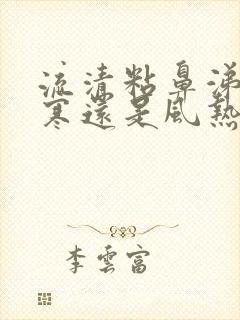 流清粘鼻涕
寒還是風熱
李雲富